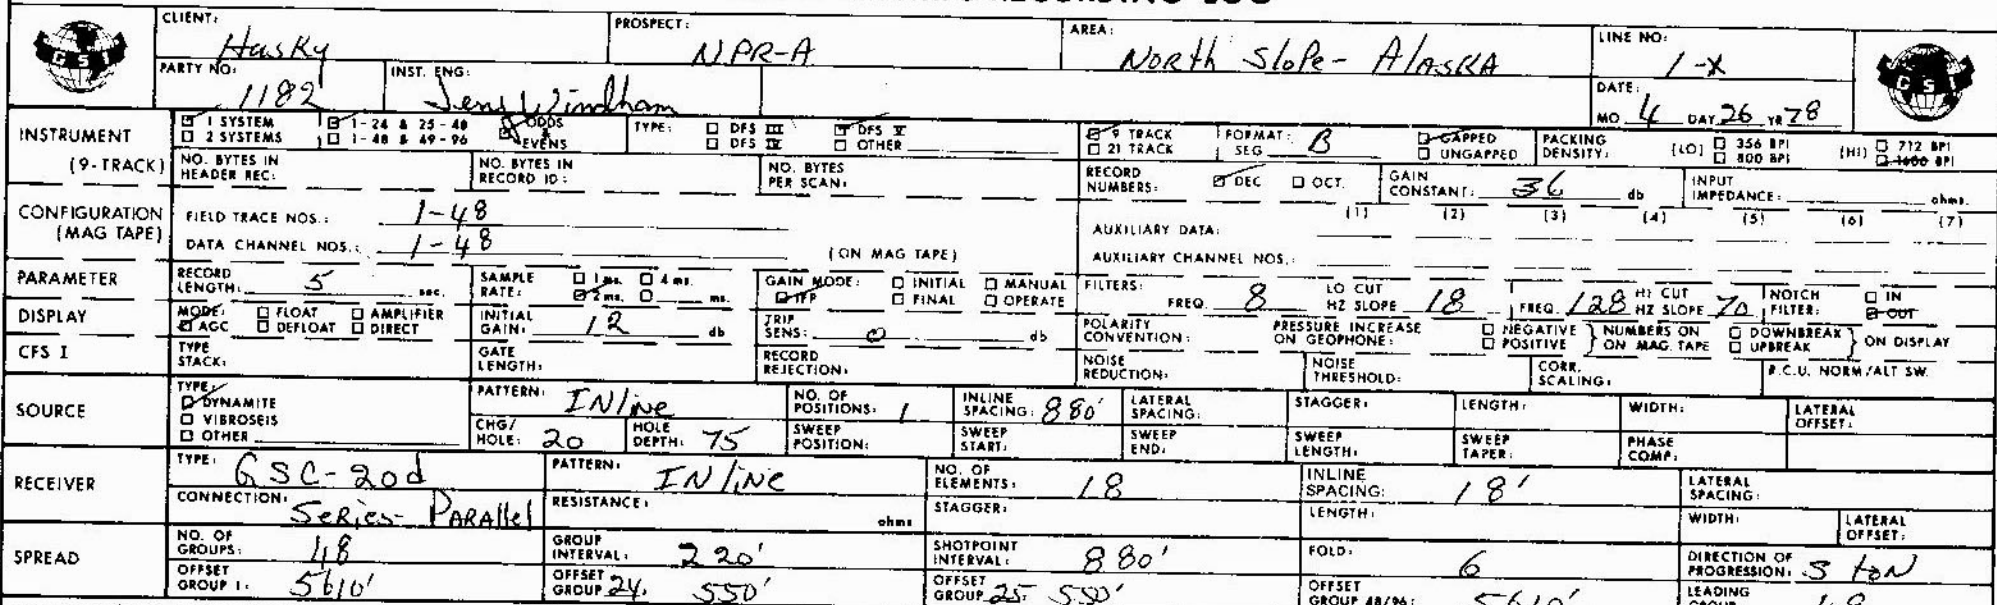 CLIENT: Husky PROSPECT: NPR-A AREA: North Slope- Alaska LINE NO: 1-X
GSI GSI
PARTY NO: 1182 INST. ENG: Windham DATE: MO 4 DAY 26 YR 78
INSTRUMENT (9-TRACK) 1 SYSTEM 1-24 & 25-48 ODDS & EVENS TYPE: DFS III DFS V 9 TRACK FORMAT: SEG B GAPPED PACKING DENSITY: (LO) 356 BPI (HI) 712 BPI
2 SYSTEMS 1-48 & 49-96 DFS IV OTHER 21 TRACK UNGAPPED 800 BPI 1600 BPI
NO. BYTES IN HEADER REC: NO. BYTES IN RECORD ID: NO. BYTES PER SCAN: RECORD NUMBERS: DEC OCT. GAIN CONSTANT: 36 db INPUT IMPEDANCE: ohms.
CONFIGURATION (MAG TAPE) FIELD TRACE NOS.: 1-48 AUXILIARY DATA: (1) (2) (3) (4) (5) (6) (7)
DATA CHANNEL NOS.: 1-48 (ON MAG TAPE) AUXILIARY CHANNEL NOS.:
PARAMETER RECORD LENGTH: 5 sec. SAMPLE RATE: 1 ms. 4 ms. 2 ms. ms. GAIN MODE: INITIAL MANUAL IFP FINAL OPERATE FILTERS: FREQ. 8 LO CUT HZ SLOPE 18 FREQ. 128 HI CUT HZ SLOPE 70 NOTCH FILTER: IN OUT
DISPLAY MODE: FLOAT AMPLIFIER AGC DEFLOAT DIRECT INITIAL GAIN: 12 db TRIP SENS: 0 db POLARITY CONVENTION: PRESSURE INCREASE ON GEOPHONE: NEGATIVE POSITIVE NUMBERS ON MAG. TAPE DOWNBREAK UPBREAK ON DISPLAY
CFS I TYPE STACK: GATE LENGTH: RECORD REJECTION: NOISE REDUCTION: NOISE THRESHOLD: CORR. SCALING: R.C.U. NORM/ALT SW.
SOURCE TYPE: DYNAMITE VIBROSEIS OTHER PATTERN: INline NO. OF POSITIONS: 1 INLINE SPACING: 880' LATERAL SPACING: STAGGER: LENGTH: WIDTH: LATERAL OFFSET:
CHG/HOLE: 20 HOLE DEPTH: 75 SWEEP POSITION: SWEEP START: SWEEP END: SWEEP LENGTH: SWEEP TAPER: PHASE COMP:
RECEIVER TYPE: GSC-20d PATTERN: INline NO. OF ELEMENTS: 18 INLINE SPACING: 18' LATERAL SPACING:
CONNECTION: Series-Parallel RESISTANCE: ohms STAGGER: LENGTH: WIDTH: LATERAL OFFSET:
SPREAD NO. OF GROUPS: 48 GROUP INTERVAL: 220' SHOTPOINT INTERVAL: 880' FOLD: 6 DIRECTION OF PROGRESSION: S to N
OFFSET GROUP 1: 5610' OFFSET GROUP 24: 550' OFFSET GROUP 25: 550' OFFSET GROUP 48/96: 5610' LEADING